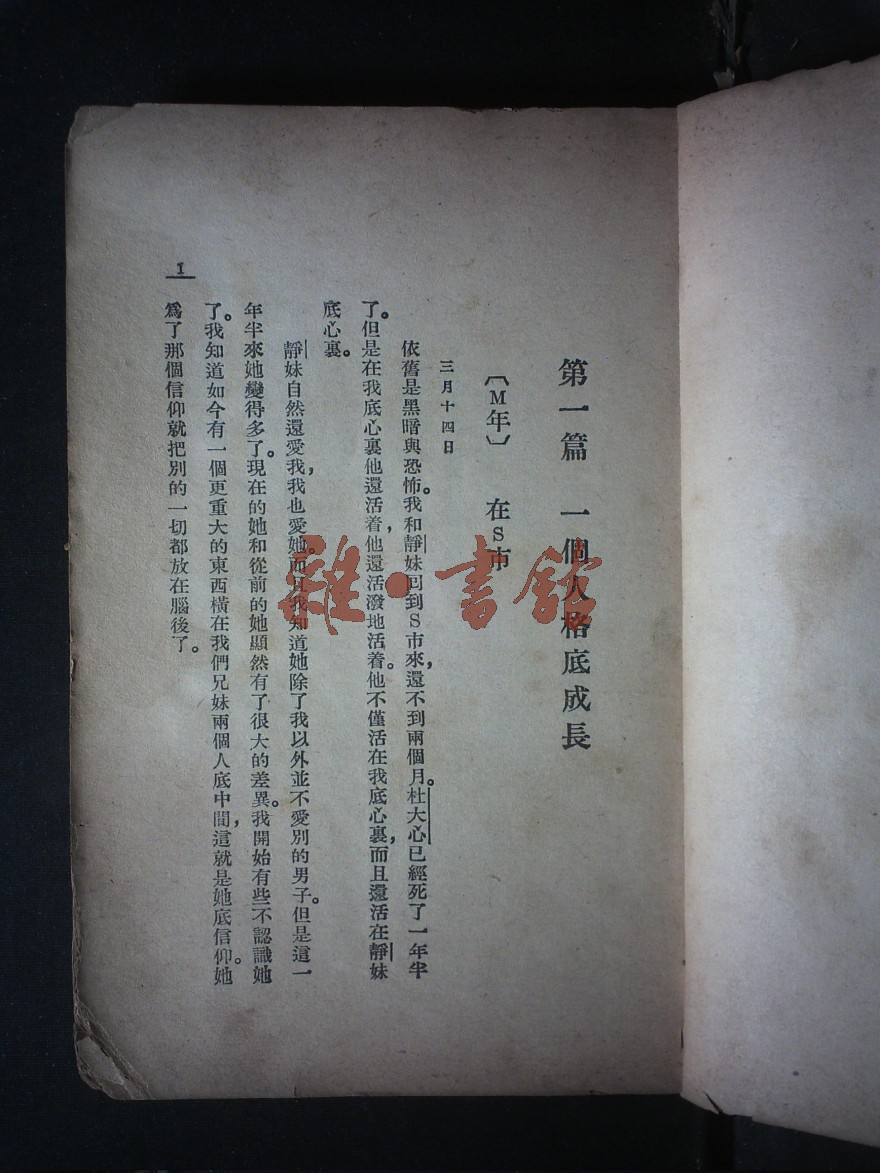 第一篇 一個人格底成長
〔M年〕 在S市
三月十四日
依舊是黑暗與恐怖。我和靜妹回到S市來，還不到兩個月。杜大心已經死了一年半
了。但是在我底心裏他還活着，他還活潑地活着。他不僅活在我底心裏，而且還活在靜妹
底心裏。
靜妹自然還愛我，我也愛她。而且我知道她除了我以外並不愛別的男子。但是這一
年半來她變得多了。現在的她和從前的她顯然有了很大的差異。我開始有些不認識她
了。我知道如今有一個更重大的東西橫在我們兄妹兩個人底中間，這就是她底信仰。她
爲了那個信仰就把別的一切都放在腦後了。
1
雜·書館